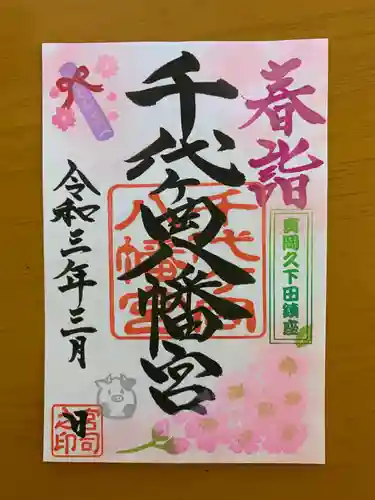 春詣
真岡久下田鎮座
千代ヶ岡八幡宮
千代ヶ岡八幡宮
令和三年三月
日
宮司之印